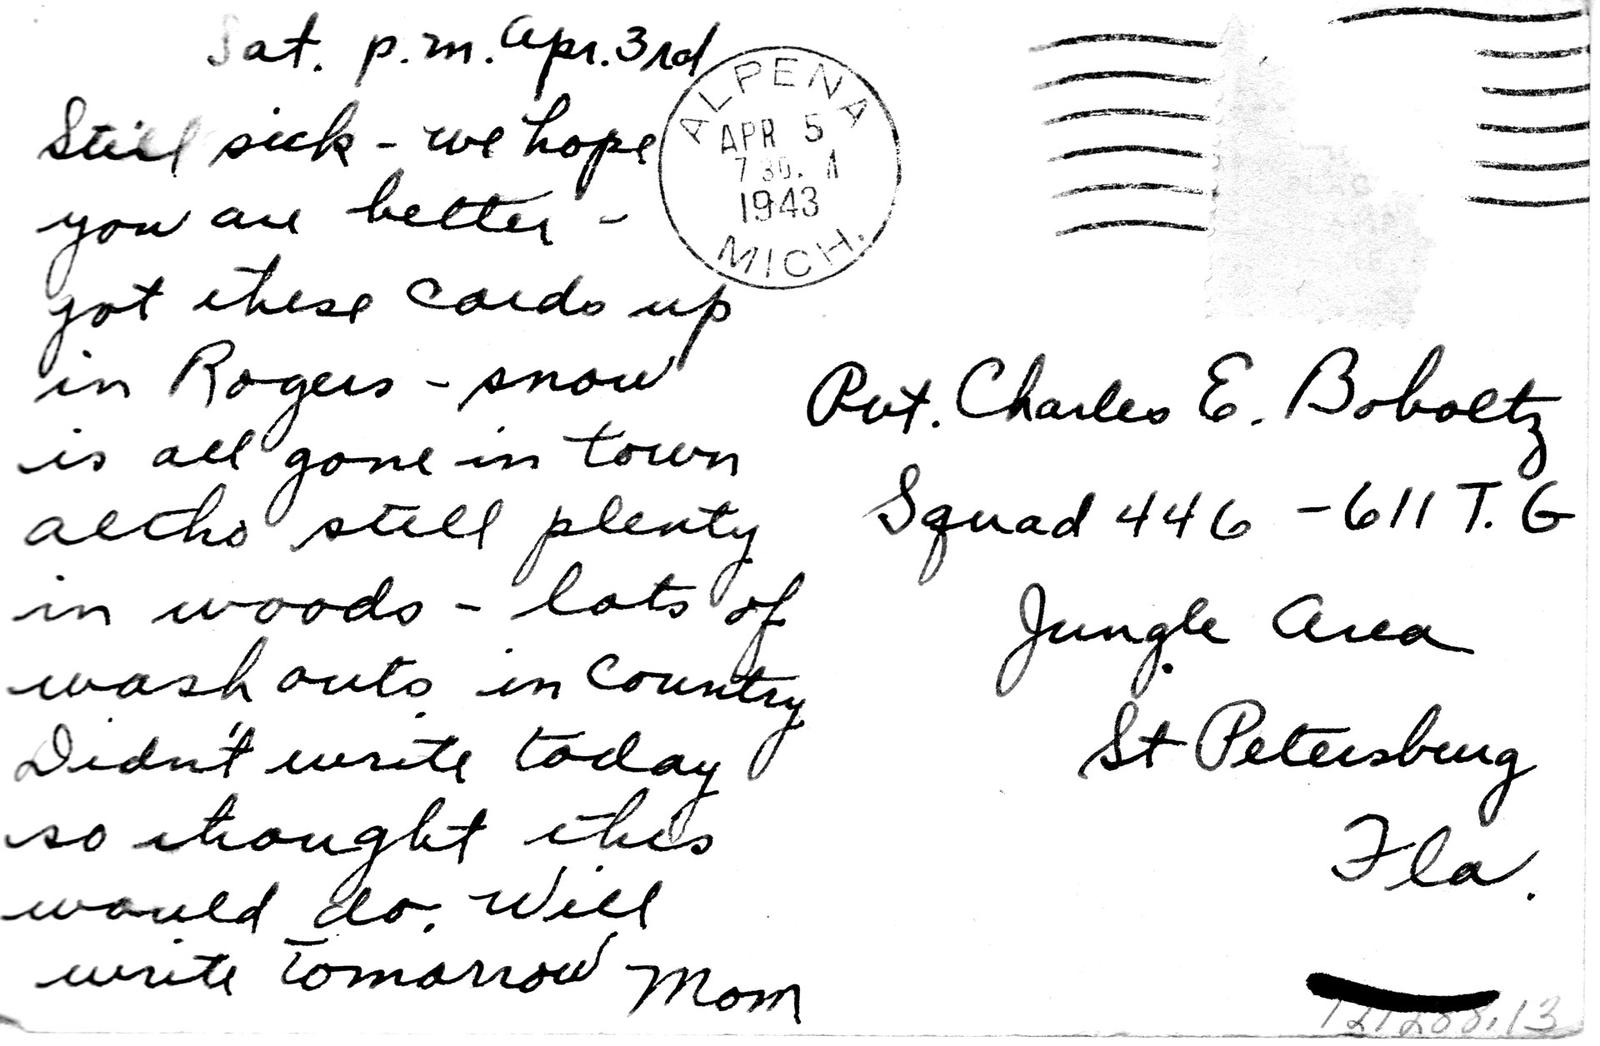 Sat. p.m. Apr. 3rd
Still sick - we hope
you are better -
got these cards up
in Rogers - snow
is all gone in town
altho still plenty
in woods - lots of
wash outs in country
Didn't write today
so thought this
would do. Will
write tomorrow Mom
ALPENA
APR 5
1943
MICH.
Pvt. Charles E. Boboltz
Squad 446 - 611 T. G
Jungle Area
St Petersburg
Fla.